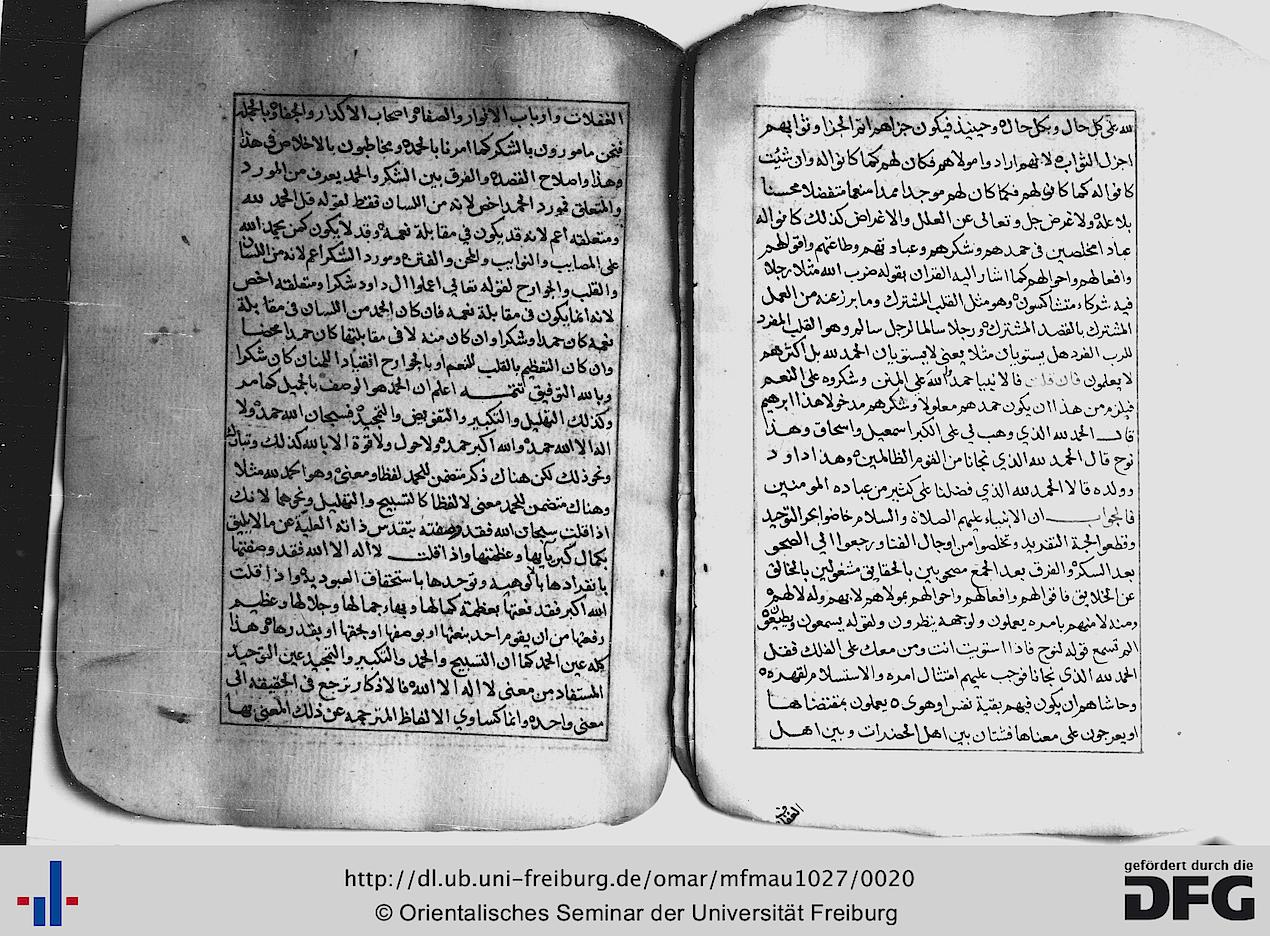 لله على كل حال وبكل حال وحينيذ فيكون جزاهم اتم الجزا وثوابهم
اجزل الثواب لانهم ارادوا مولاهم فكان لهم كما كانوا له وان شئت
كانوا له كما كان لهم فكما كان لهم موجدا ممدا منعما متفضلا محسنا
بلا علة ولا غرض جل وتعالى عن العلل والاغراض كذلك كانوا له
عبادا مخلصين في حمدهم وشكرهم وعباداتهم وطاعتهم واقوالهم
وافعالهم واحوالهم كما اشار اليه القران بقوله ضرب الله مثلا رجلا
فيه شركاء متشاكسون وهو مثل القلب المشترك وما برز عنه من العمل
المشترك بالقصد المشترك ورجلا سالما لرجل سالم وهو القلب المفرد
للرب الفرد هل يستويان مثلا يعني لا يستويان الحمد لله بل اكثرهم
لا يعلمون فان قلت فالانبيا حمدوا الله على المنن وشكروه على النعم
فيلزم من هذا ان يكون حمدهم معلولا وشكرهم مدخولا هذا ابرهيم
قال الحمد لله الذي وهب لي على الكبر اسمعيل واسحاق وهذا
نوح قال الحمد لله الذي نجانا من القوم الظالمين وهذا داود
وولده قالا الحمد لله الذي فضلنا على كثير من عباده المومنين
فالجواب ان الانبياء عليهم الصلاة والسلام خاضوا بحر التوحيد
وقطعوا لجة التفريد وتخلصوا من اوحال الفنا ورجعوا الى الصحو
بعد السكر والفرق بعد الجمع مصحوبين بالحقايق مشغولين بالخالق
عن الخلايق فاقوالهم وافعالهم واحوالهم بمولاهم لا بهم وله لا لهم
ومنه لا منهم بامره يعملون ولوجهه ينظرون ولقوله يسمعون ويطيعون
الم تسمع قوله لنوح فاذا استويت انت ومن معك على الفلك فقل
الحمد لله الذي نجانا فوجب عليهم امتثال امره والاستسلام لقهره
وحاشاهم ان يكون فيهم بقية نفس او هوى يعملون بمقتضاها
او يعرجون على معناها فشتان بين اهل الحضرات وبين اهل
الغفلات
الغفلات وارباب الانوار والصفا واصحاب الاكدار والجفاء بالحمد
فنحن مامورون بالشكر كما امرنا بالحمد ومخاطبون بالاخلاص في هذا
وهذا واصلاح القصد والفرق بين الشكر والحمد يعرف من المورد
والمتعلق فمورد الحمد اخص لانه من اللسان فقط لقوله قل الحمد لله
ومتعلقه اعم لانه قد يكون في مقابلة نعمة وقد لا يكون كمن يحمد الله
على المصايب والنوايب والمحن والفتن ومورد الشكر اعم لانه من اللسان
والقلب والجوارح لقوله تعالى اعملوا ال داود شكرا ومتعلقه اخص
لانه انما يكون في مقابلة نعمة فان كان الحمد من اللسان في مقابلة
نعمة كان حمدا وشكرا وان كان منه لا في مقابلتها كان حمدا محضا
وان كان التعظيم بالقلب للنعم او بالجوارح انقيادا للجنان كان شكرا
وبالله التوفيق تتمة اعلم ان الحمد هو الوصف بالجميل كما مر
وكذلك التهليل والتكبير والتفويض والتمجيد فسبحان الله حمد ولا
اله الا الله حمد والله اكبر حمد ولا حول ولا قوة الا بالله كذلك وتبارك
ونحو ذلك لكن هناك ذكر متضمن للحمد لفظا ومعنى وهو الحمد لله مثلا
وهناك متضمن للحمد معنى لا لفظا كالتسبيح والتهليل ونحوهما لانك
اذا قلت سبحان الله فقد وصفته بتقدس ذاته العلية عن ما لا يليق
بكمال كبريايها وعظمتها واذا قلت لا اله الا الله فقد وصفتها
بانفرادها بالوهية وتوحدها باستحقاق العبودية واذا قلت
الله اكبر فقد نعتها بعظمة كمالها وبهاء جمالها وجلالها وعظيم
رفعتها من ان يقوم احد بنعتها او بوصفها او بحقها او بقدرها وهذا
كله عين الحمد كما ان التسبيح والحمد والتكبير والتمجيد عين التوحيد
المستفاد من معنى لا اله الا الله فالاذكار ترجع في الحقيقة الى
معنى واحد وانما كساوي الالفاظ المترجمة عن ذلك المعنى بها
http://dl.ub.uni-freiburg.de/omar/mfmau1027/0020
© Orientalisches Seminar der Universität Freiburg
gefördert durch die
DFG